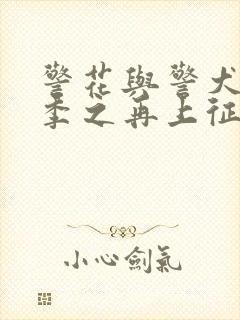 警花與警犬
季之再上征
小心劍氣